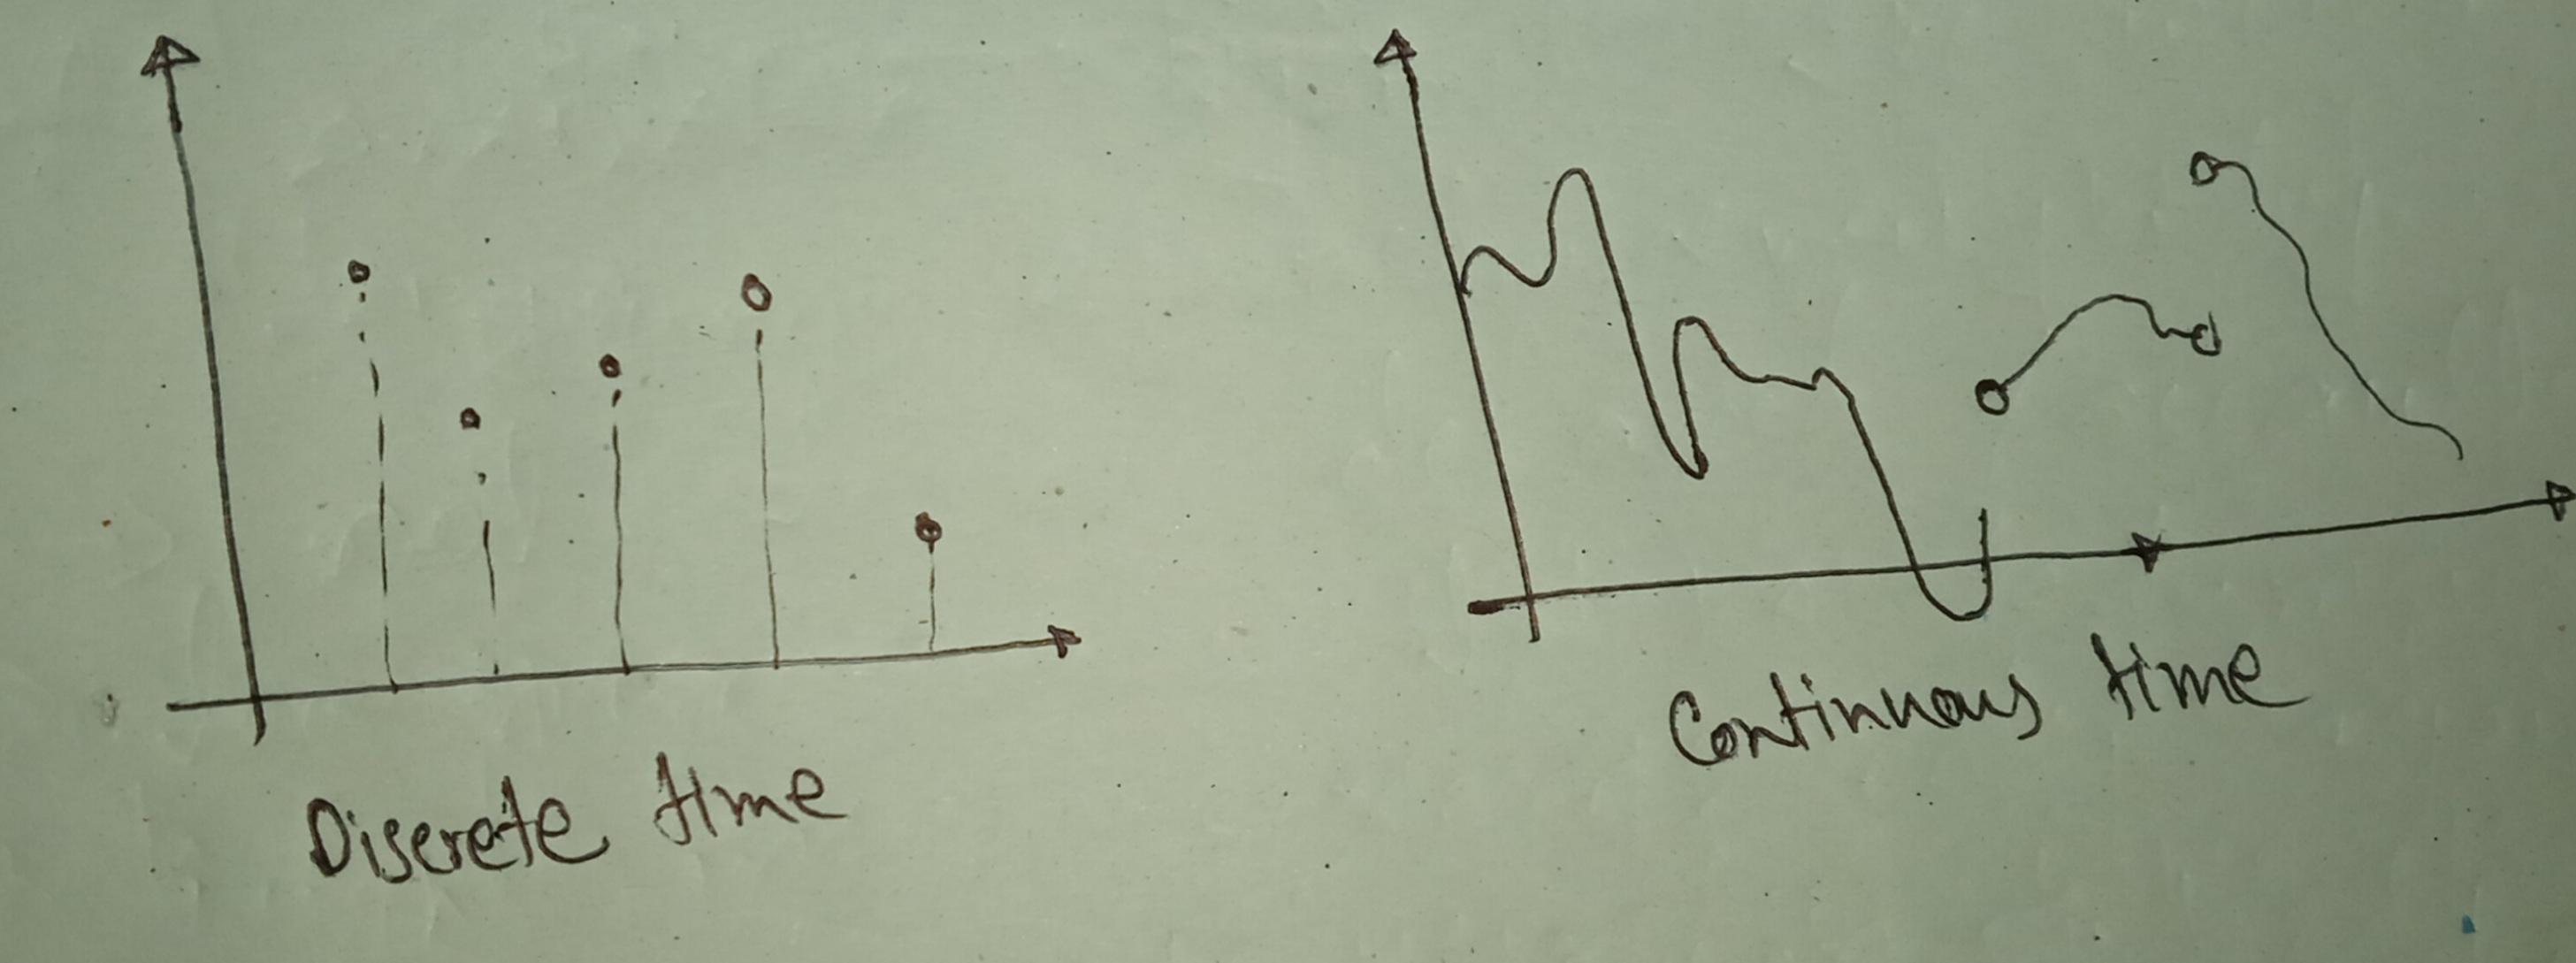 Discrete time
Continuous time